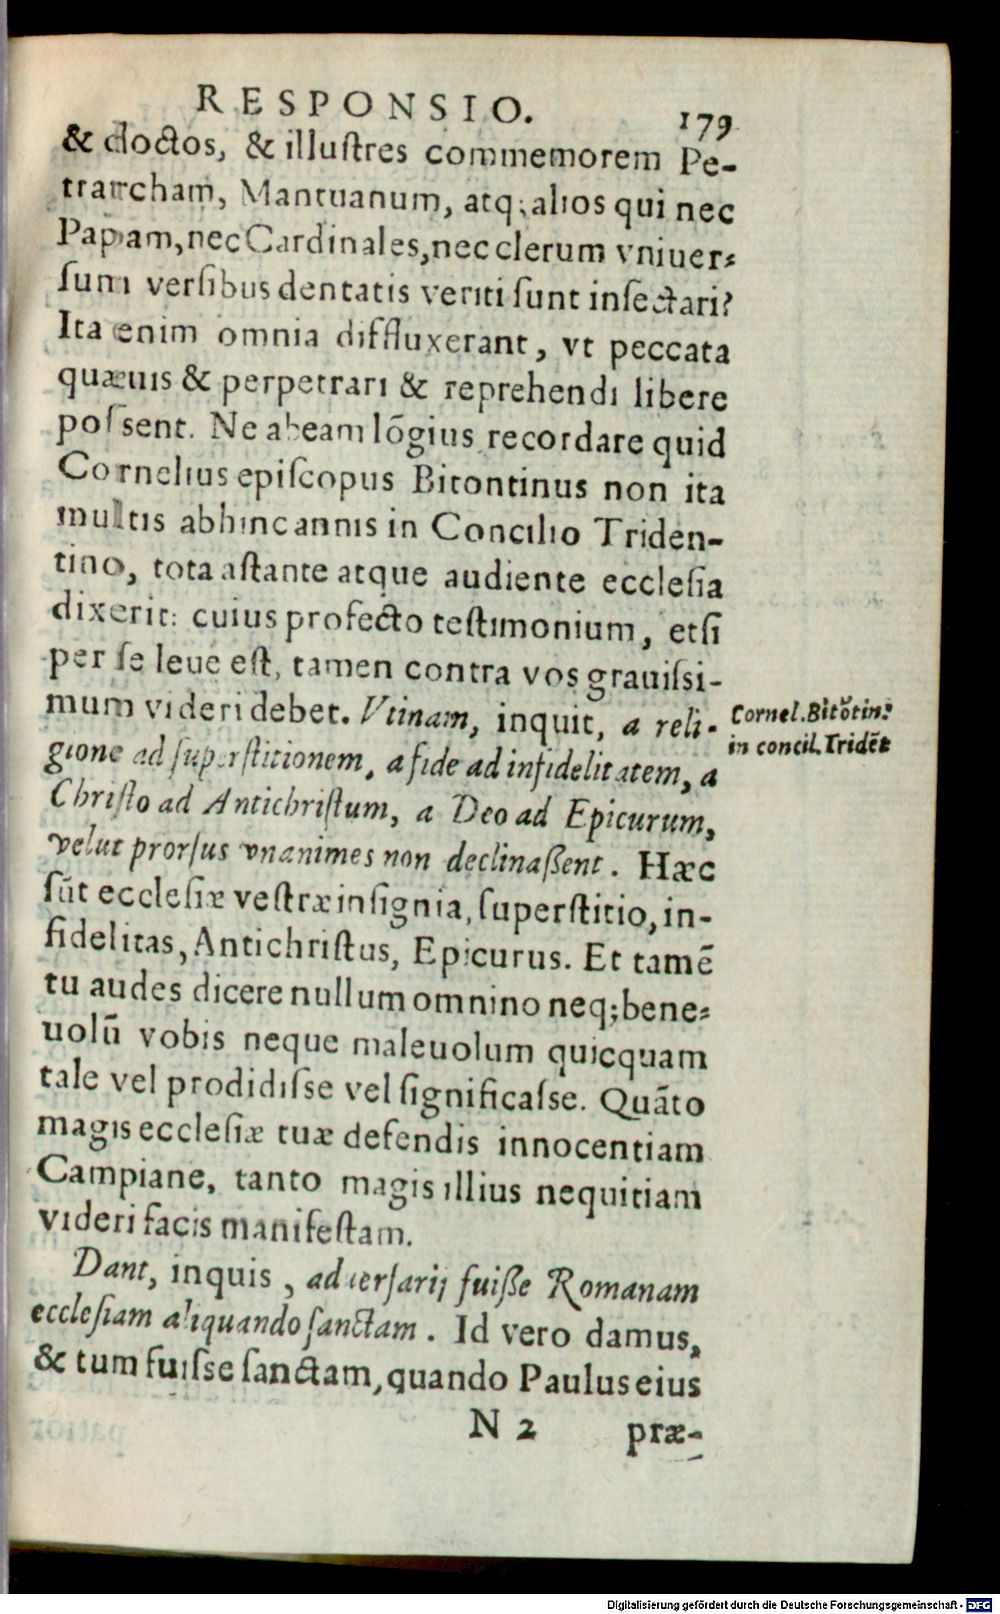 RESPONSIO. 179
& doctos, & illuſtres commemorem Pe-
trarcham, Mantuanum, atq; alios qui nec
Papam, nec Cardinales, nec clerum vniuer-
ſum verſibus dentatis veriti ſunt inſectari?
Ita enim omnia diffluxerant, vt peccata
quæuis & perpetrari & reprehendi libere
poſsent. Ne abeam lõgius recordare quid
Cornelius epiſcopus Bitontinus non ita
multis abhinc annis in Concilio Triden-
tino, tota aſtante atque audiente eccleſia
dixerit: cuius profecto teſtimonium, etſi
per ſe leue eſt, tamen contra vos grauiſsi-
mum videri debet. Vtinam, inquit, a reli-
gione ad ſuperſtitionem, a fide ad infidelitatem, a
Chriſto ad Antichriſtum, a Deo ad Epicurum,
velut prorſus vnanimes non declinaßent. Hæc
sũt eccleſiæ veſtræ inſignia, ſuperſtitio, in-
fidelitas, Antichriſtus, Epicurus. Et tamẽ
tu audes dicere nullum omnino neq; bene-
uolũ vobis neque maleuolum quicquam
tale vel prodidiſse vel ſignificaſse. Quãto
magis eccleſiæ tuæ defendis innocentiam
Campiane, tanto magis illius nequitiam
videri facis manifeſtam.
Dant, inquis, aduerſarij fuiße Romanam
eccleſiam aliquando ſanctam. Id vero damus,
& tum fuiſse ſanctam, quando Paulus eius
N 2 præ-
Cornel. Bitõtin.
in concil. Tridẽt
Digitalisierung gefördert durch die Deutsche Forschungsgemeinschaft - DFG